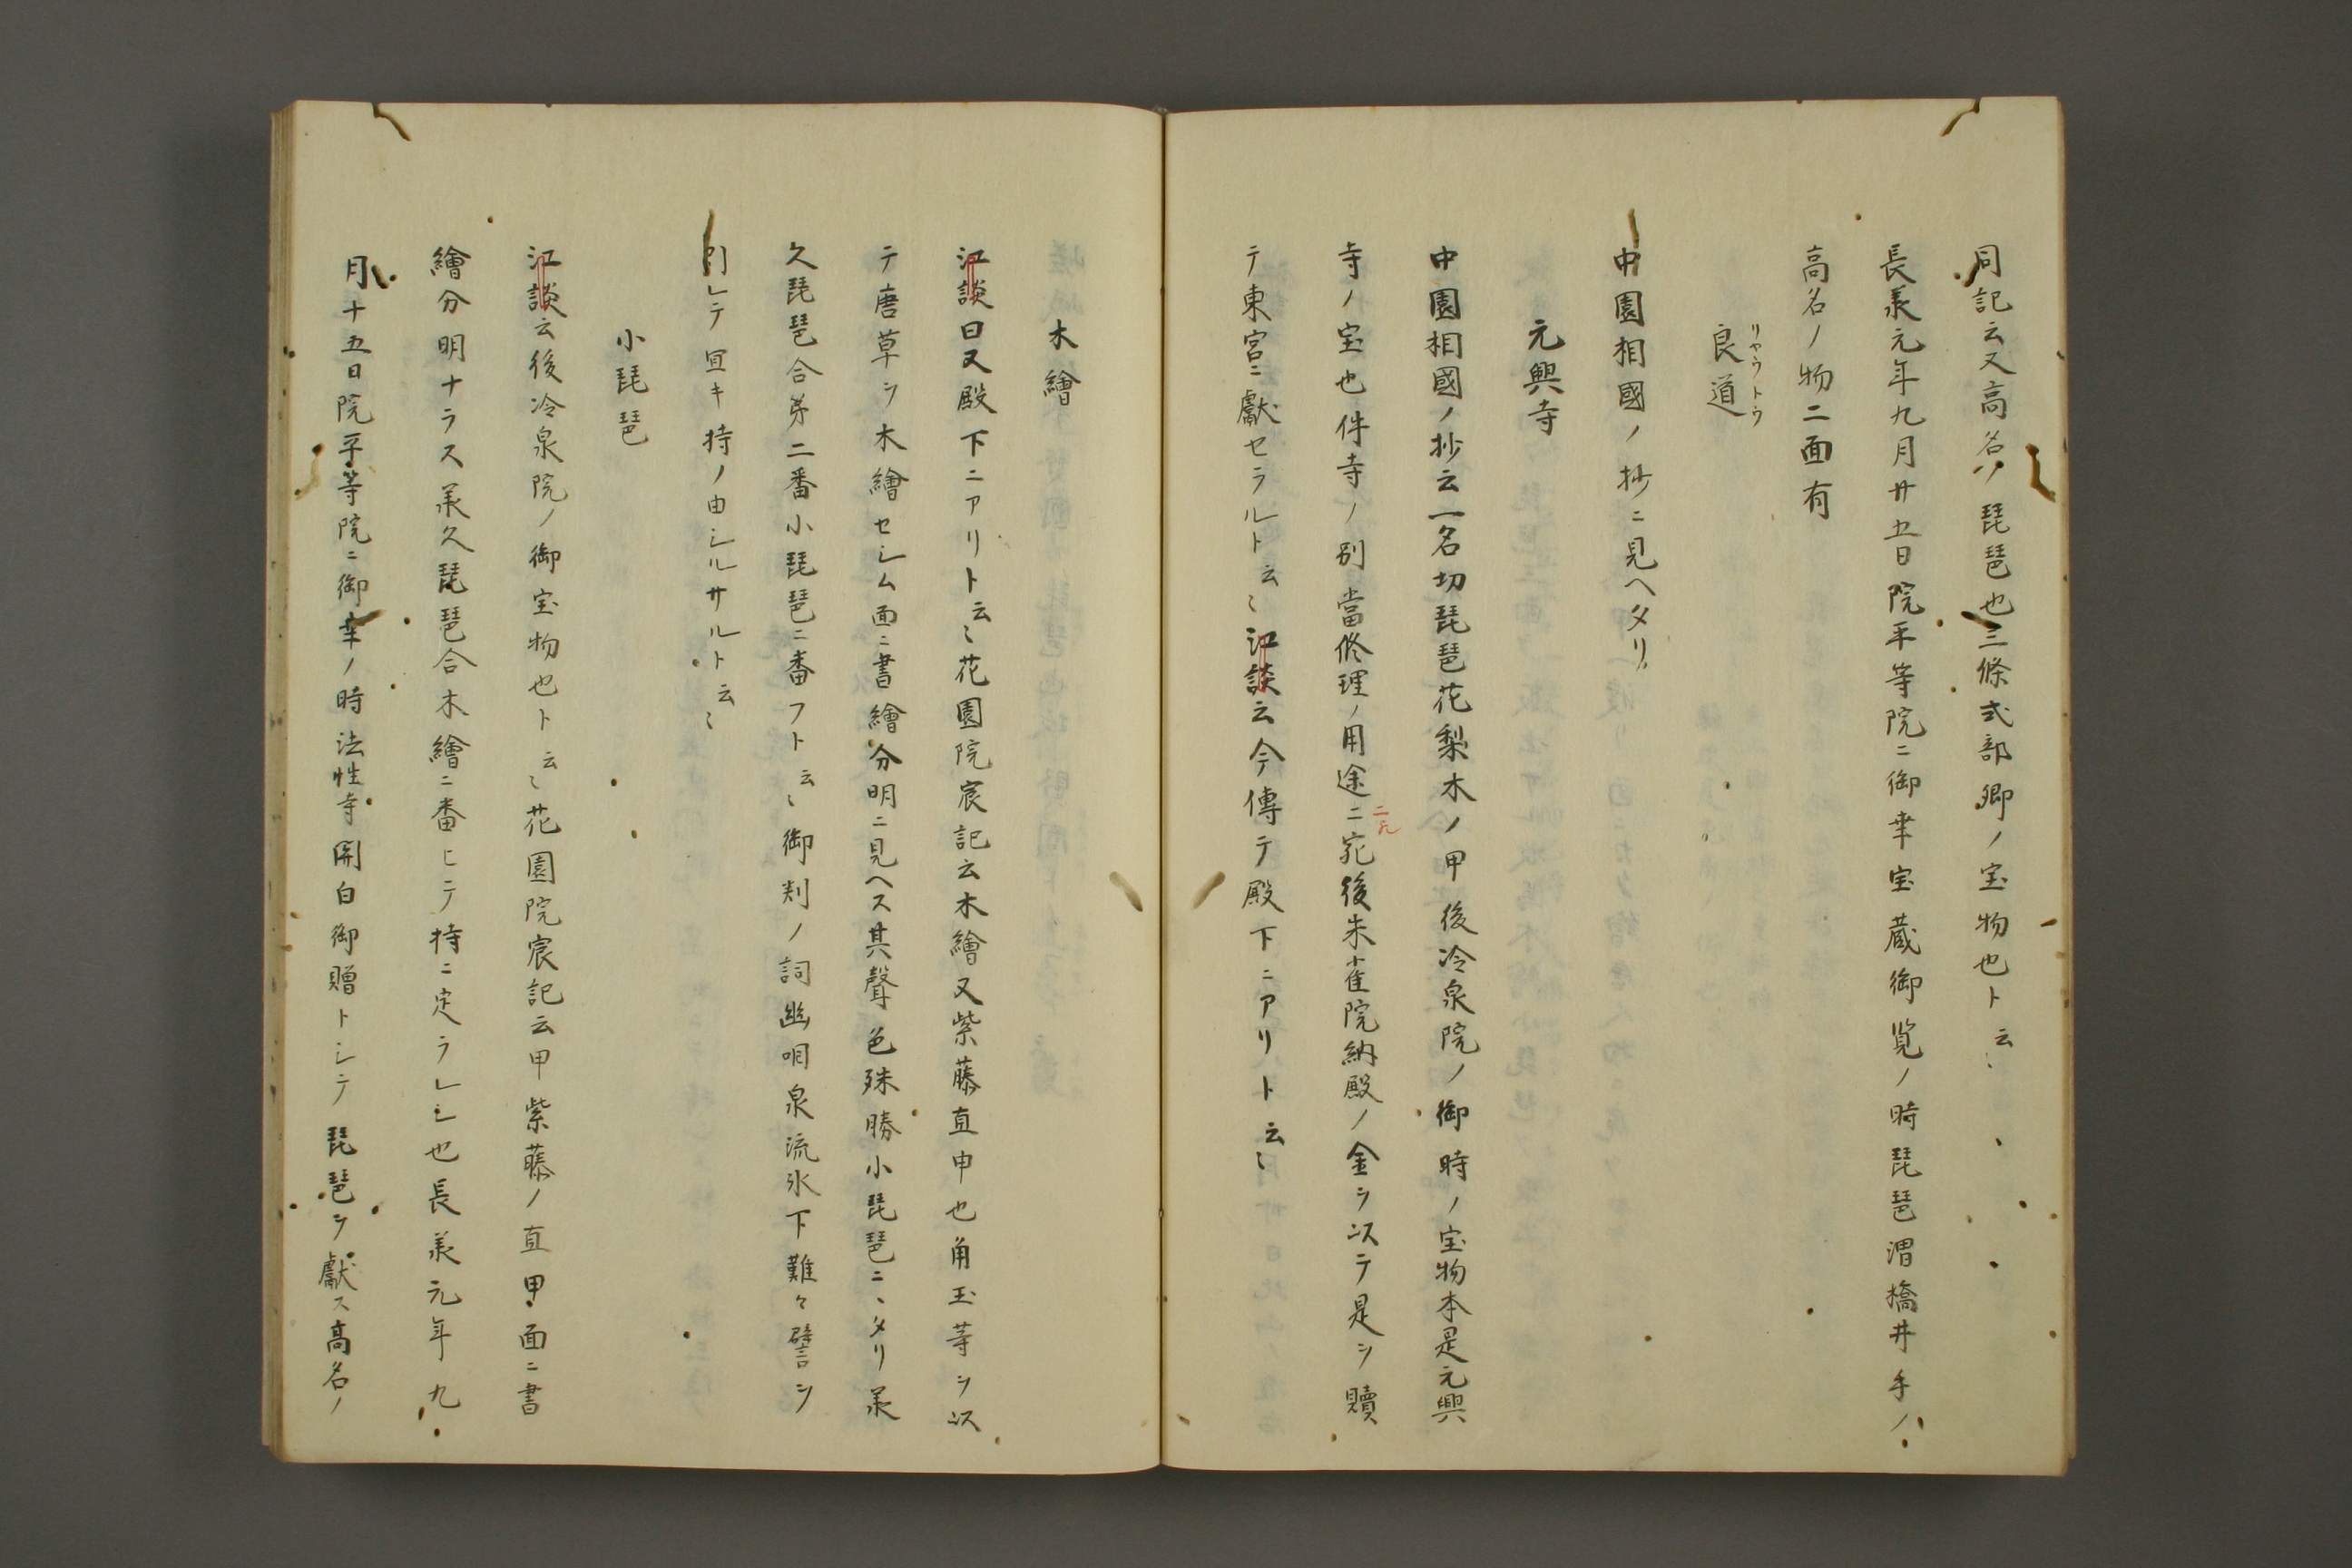 同記云又高名ノ琵琶也三條式部卿ノ宝物也ト云〻
長羕元年九月廿五日院平等院ニ御幸宝蔵御覧ノ時琵琶渭橋井手ノ
高名ノ物二面有
良道
リヤウトウ
中園相國ノ抄ニ見ヘタリ
元興寺
中園相國ノ抄云一名切琵琶花梨木ノ甲後冷泉院ノ御時ノ宝物本是元興
寺ノ宝也件寺ノ別當修理ノ用途ニ宛後朱雀院納殿ノ金ヲ以テ是ヲ贖
テ東宮ニ獻セラルト云〻江談云今傳テ殿下ニアリト云〻
木繪
江談曰又殿下ニアリト云〻花園院宸記云木繪又紫藤直甲也角玉等ヲ以
テ唐草ヲ木繪セシム面ニ書繪分明ニ見ヘス其聲色殊勝小琵琶ニヽタリ羕
久琵琶合㐧二番小琵琶ニ番フト云〻御判ノ詞幽咽泉流氷下難々譬ヲ
引レテ冝キ持ノ由シルサルト云〻
小琵琶
江談云後冷泉院ノ御宝物也ト云〻花園院宸記云甲紫藤ノ直甲面ニ書
繪分明ナラス羕久琵琶合木繪ニ番ヒテ持ニ定ラレシ也長羕元年九
月十五日院平等院ニ御幸ノ時法性寺関白御贈トシテ琵琶ヲ獻ス高名ノ